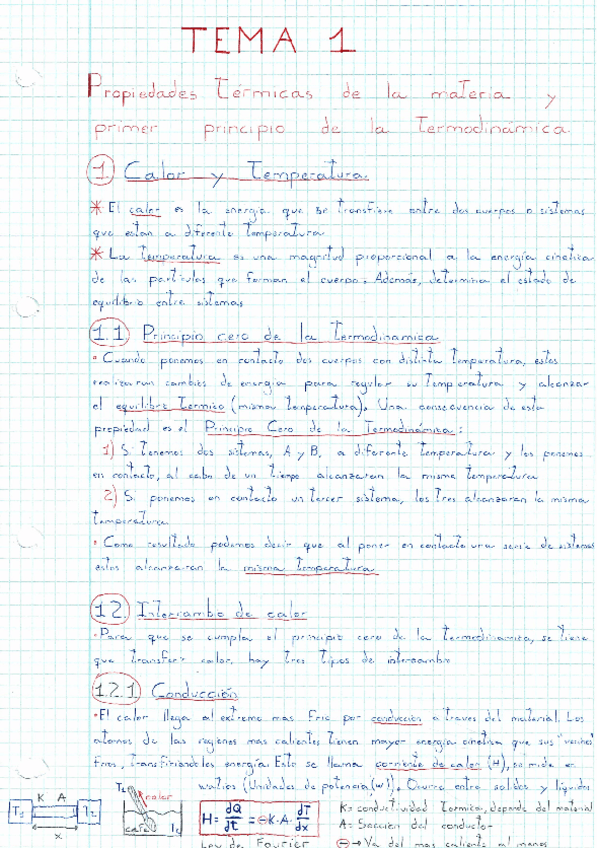 TEMA 1
Propiedades Térmicas de la materia y
primer principio de la Termodinámica.
1. Calor y Temperatura.
* El calor es la energía que se transfiere entre dos cuerpos o sistemas
que estan a diferente Temperatura
* La Temperatura es una magnitud proporcional a la energía cinetica
de las partículas que forman el cuerpo. Además, determina el estado de
equilibrio entre sistemas
1.1 Principio cero de la Termodinamica
· Cuando ponemos en contacto dos cuerpos con distinta Temperatura, estos
realizaran cambios de energia para regular su Temperatura y alcanzar
el equilibrio Termico (misma Temperatura). Una consecuencia de esta
propiedad es el Principio Cero de la Termodinámica:
1) Si Tenemos dos sistemas, A y B, a diferente Temperatura y los ponemos
en contacto, al cabo de un Tiempo alcanzaran la misma Temperatura
2) Si ponemos en contacto un Tercer sistema, los Tres alcanzaran la misma
Temperatura
· Como resultado podemos decir que al poner en contacto una serie de sistemas
estos alcanzaran la misma Temperatura
1.2. Intercambio de calor
· Para que se cumpla el principio cero de la Termodinamica, se Tiene
que Transferir calor, hay Tres Tipos de intercambio
1.2.1 Conducción
· El calor llega al extremo mas frio por conducción a Traves del material. Los
atomos de las regiones mas calientes Tienen mayor energia cinetica que sus "vecinos"
frios, Transfiriendoles energía. Esto se llama corriente de calor (H), se mide en
watios (Unidades de potencia (W)). Ocurre entre solidos y liquidos
K A
T1 T2
x
T2 calor
calor T1
H = dQ/dt = -K·A· dT/dx
K= conductividad Termica, depende del material
A= Sección del conductor
Ley de Fourier
⊖ → Va del mas caliente al menos